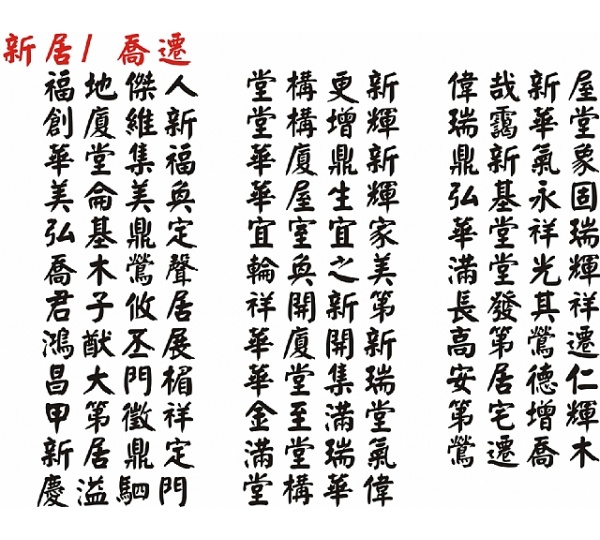 新居/ 喬遷
福地傑人 堂構更新 偉哉新屋
創廈維新 堂構增輝 瑞靄華堂
華堂集福 華廈鼎新 鼎新氣象
美侖美奐 華屋生輝 弘基永固
弘基鼎定 宜室宜家 華堂祥瑞
喬木鶯聲 輪奐之美 滿堂光輝
君子攸居 祥開新第 長發其祥
鴻猷丕展 華廈開新 高第鶯遷
昌大門楣 華堂集瑞 安居德仁
甲第徵祥 金至滿堂 第宅增輝
新居鼎定 滿堂瑞氣 鶯遷喬木
慶溢駟門 堂構華偉